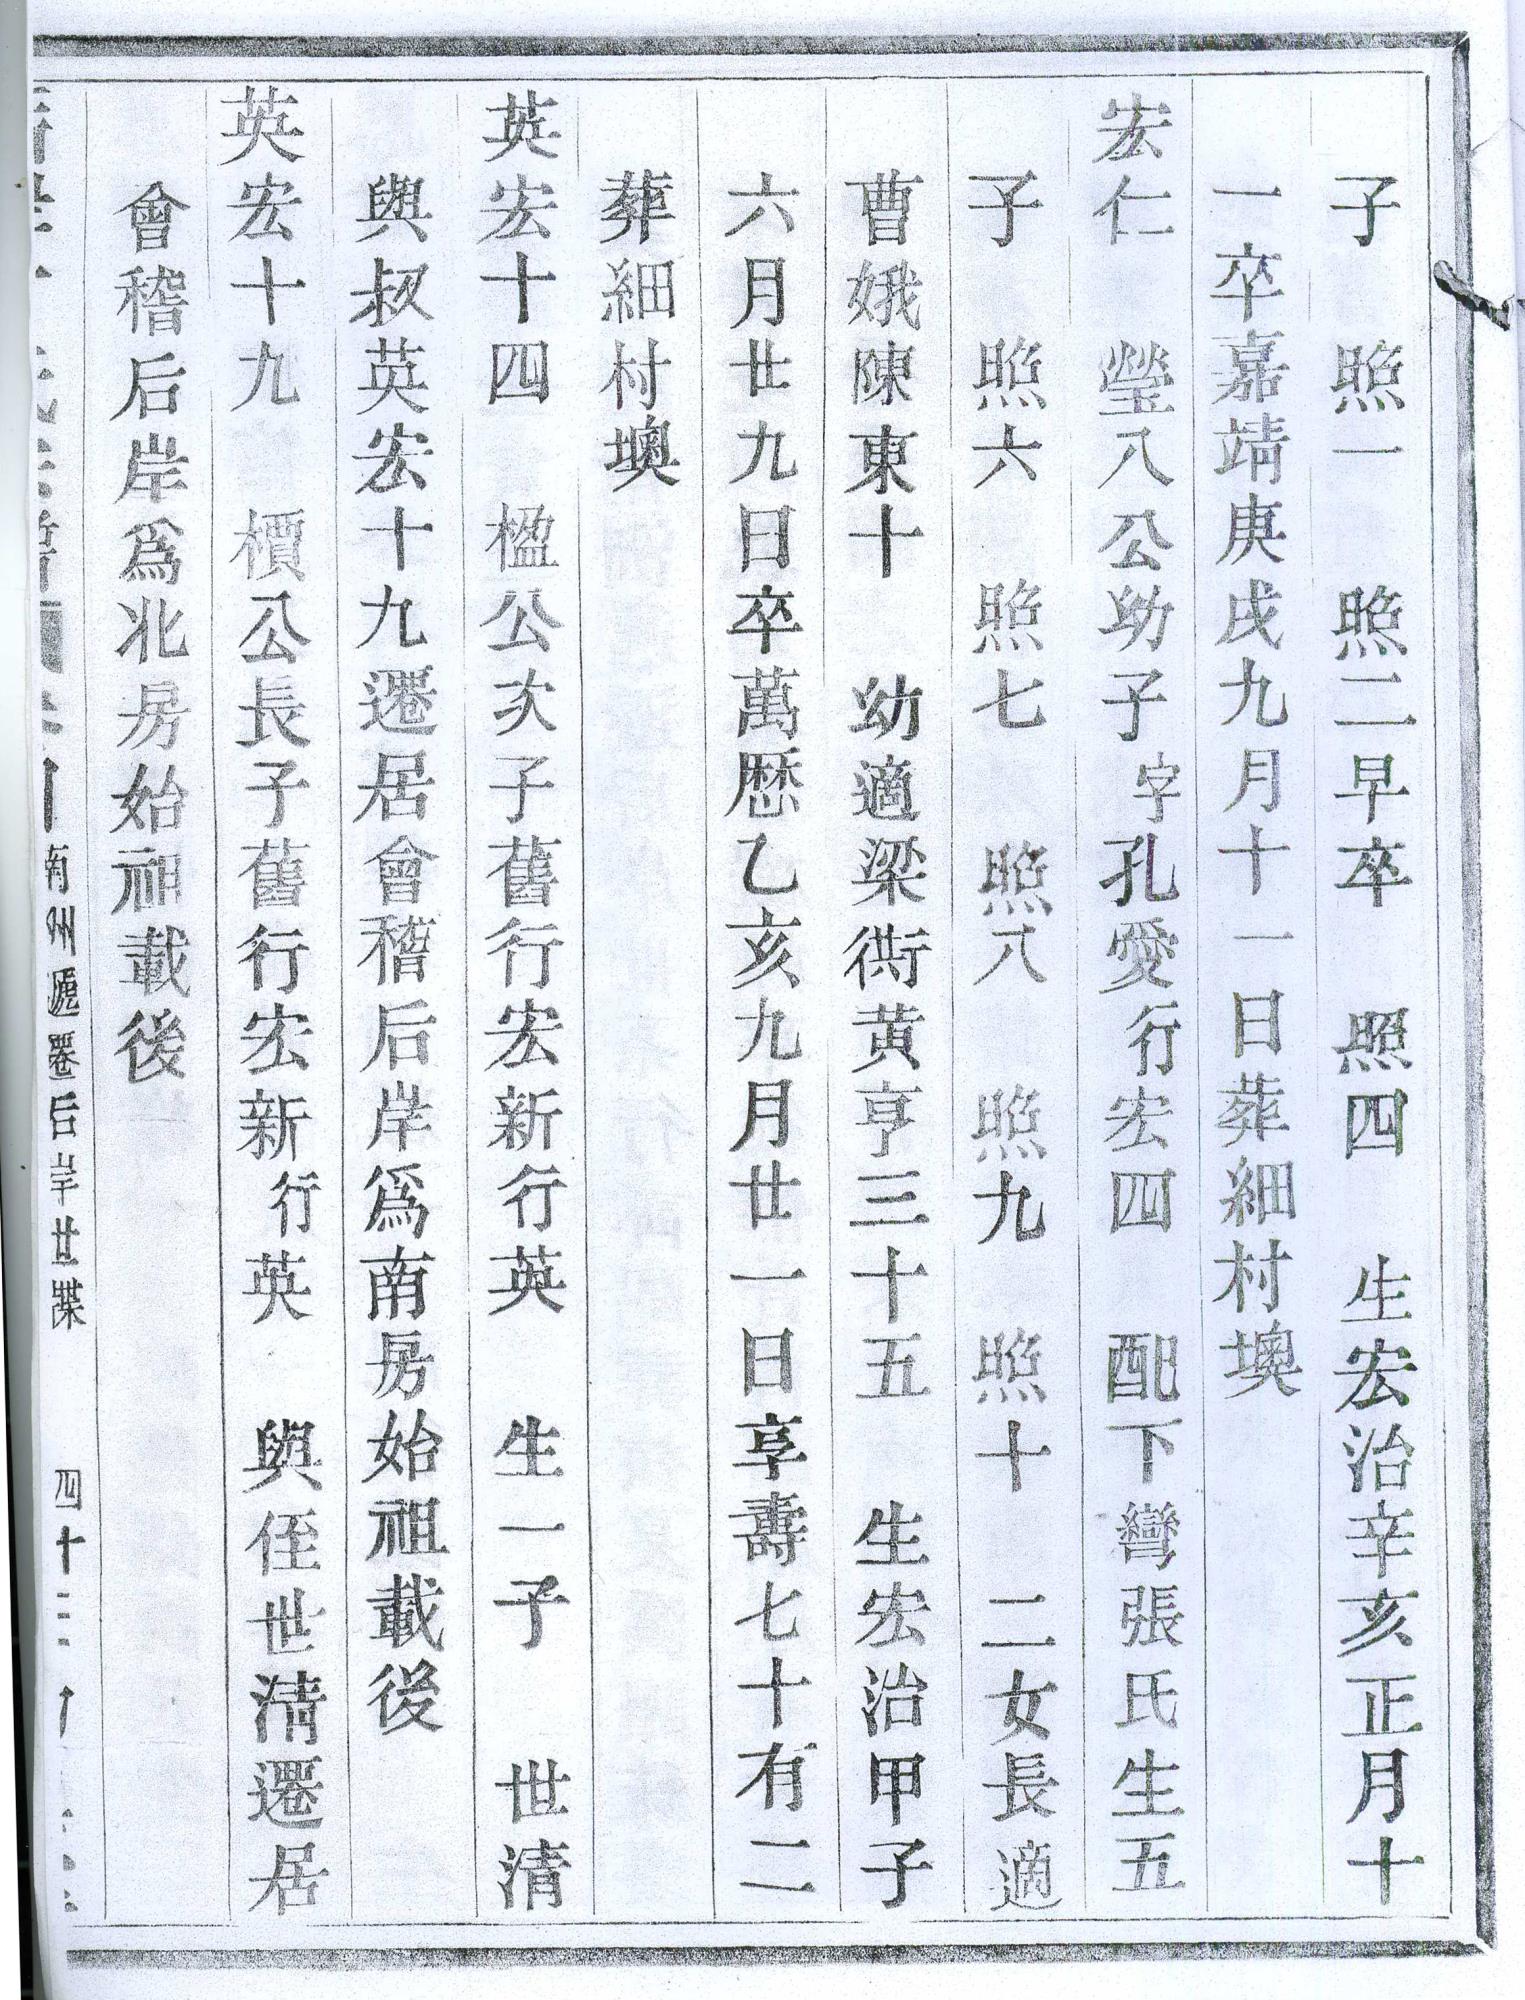 子　照一　照二早卒　照四　生宏治辛亥正月十
一卒嘉靖庚戌九月十一日葬細村墺
宏仁　瑩八公幼子字孔愛行宏四　配下彎張氏生五
子　照六　照七　照八　照九　照十　二女長適
曹娥陳東十　幼適梁衖黄亨三十五　生宏治甲子
六月廿九日卒萬厯乙亥九月廿一日享壽七十有二
葬細村墺
英宏十四　楹公次子舊行宏新行英　生一子　世清
與叔英宏十九遷居會稽后岸爲南房始祖載後
英宏十九　檟公長子舊行宏新行英　與侄世淸遷居
會稽后岸爲北房始祖載後
南州遞遷后岸世牒　四十三